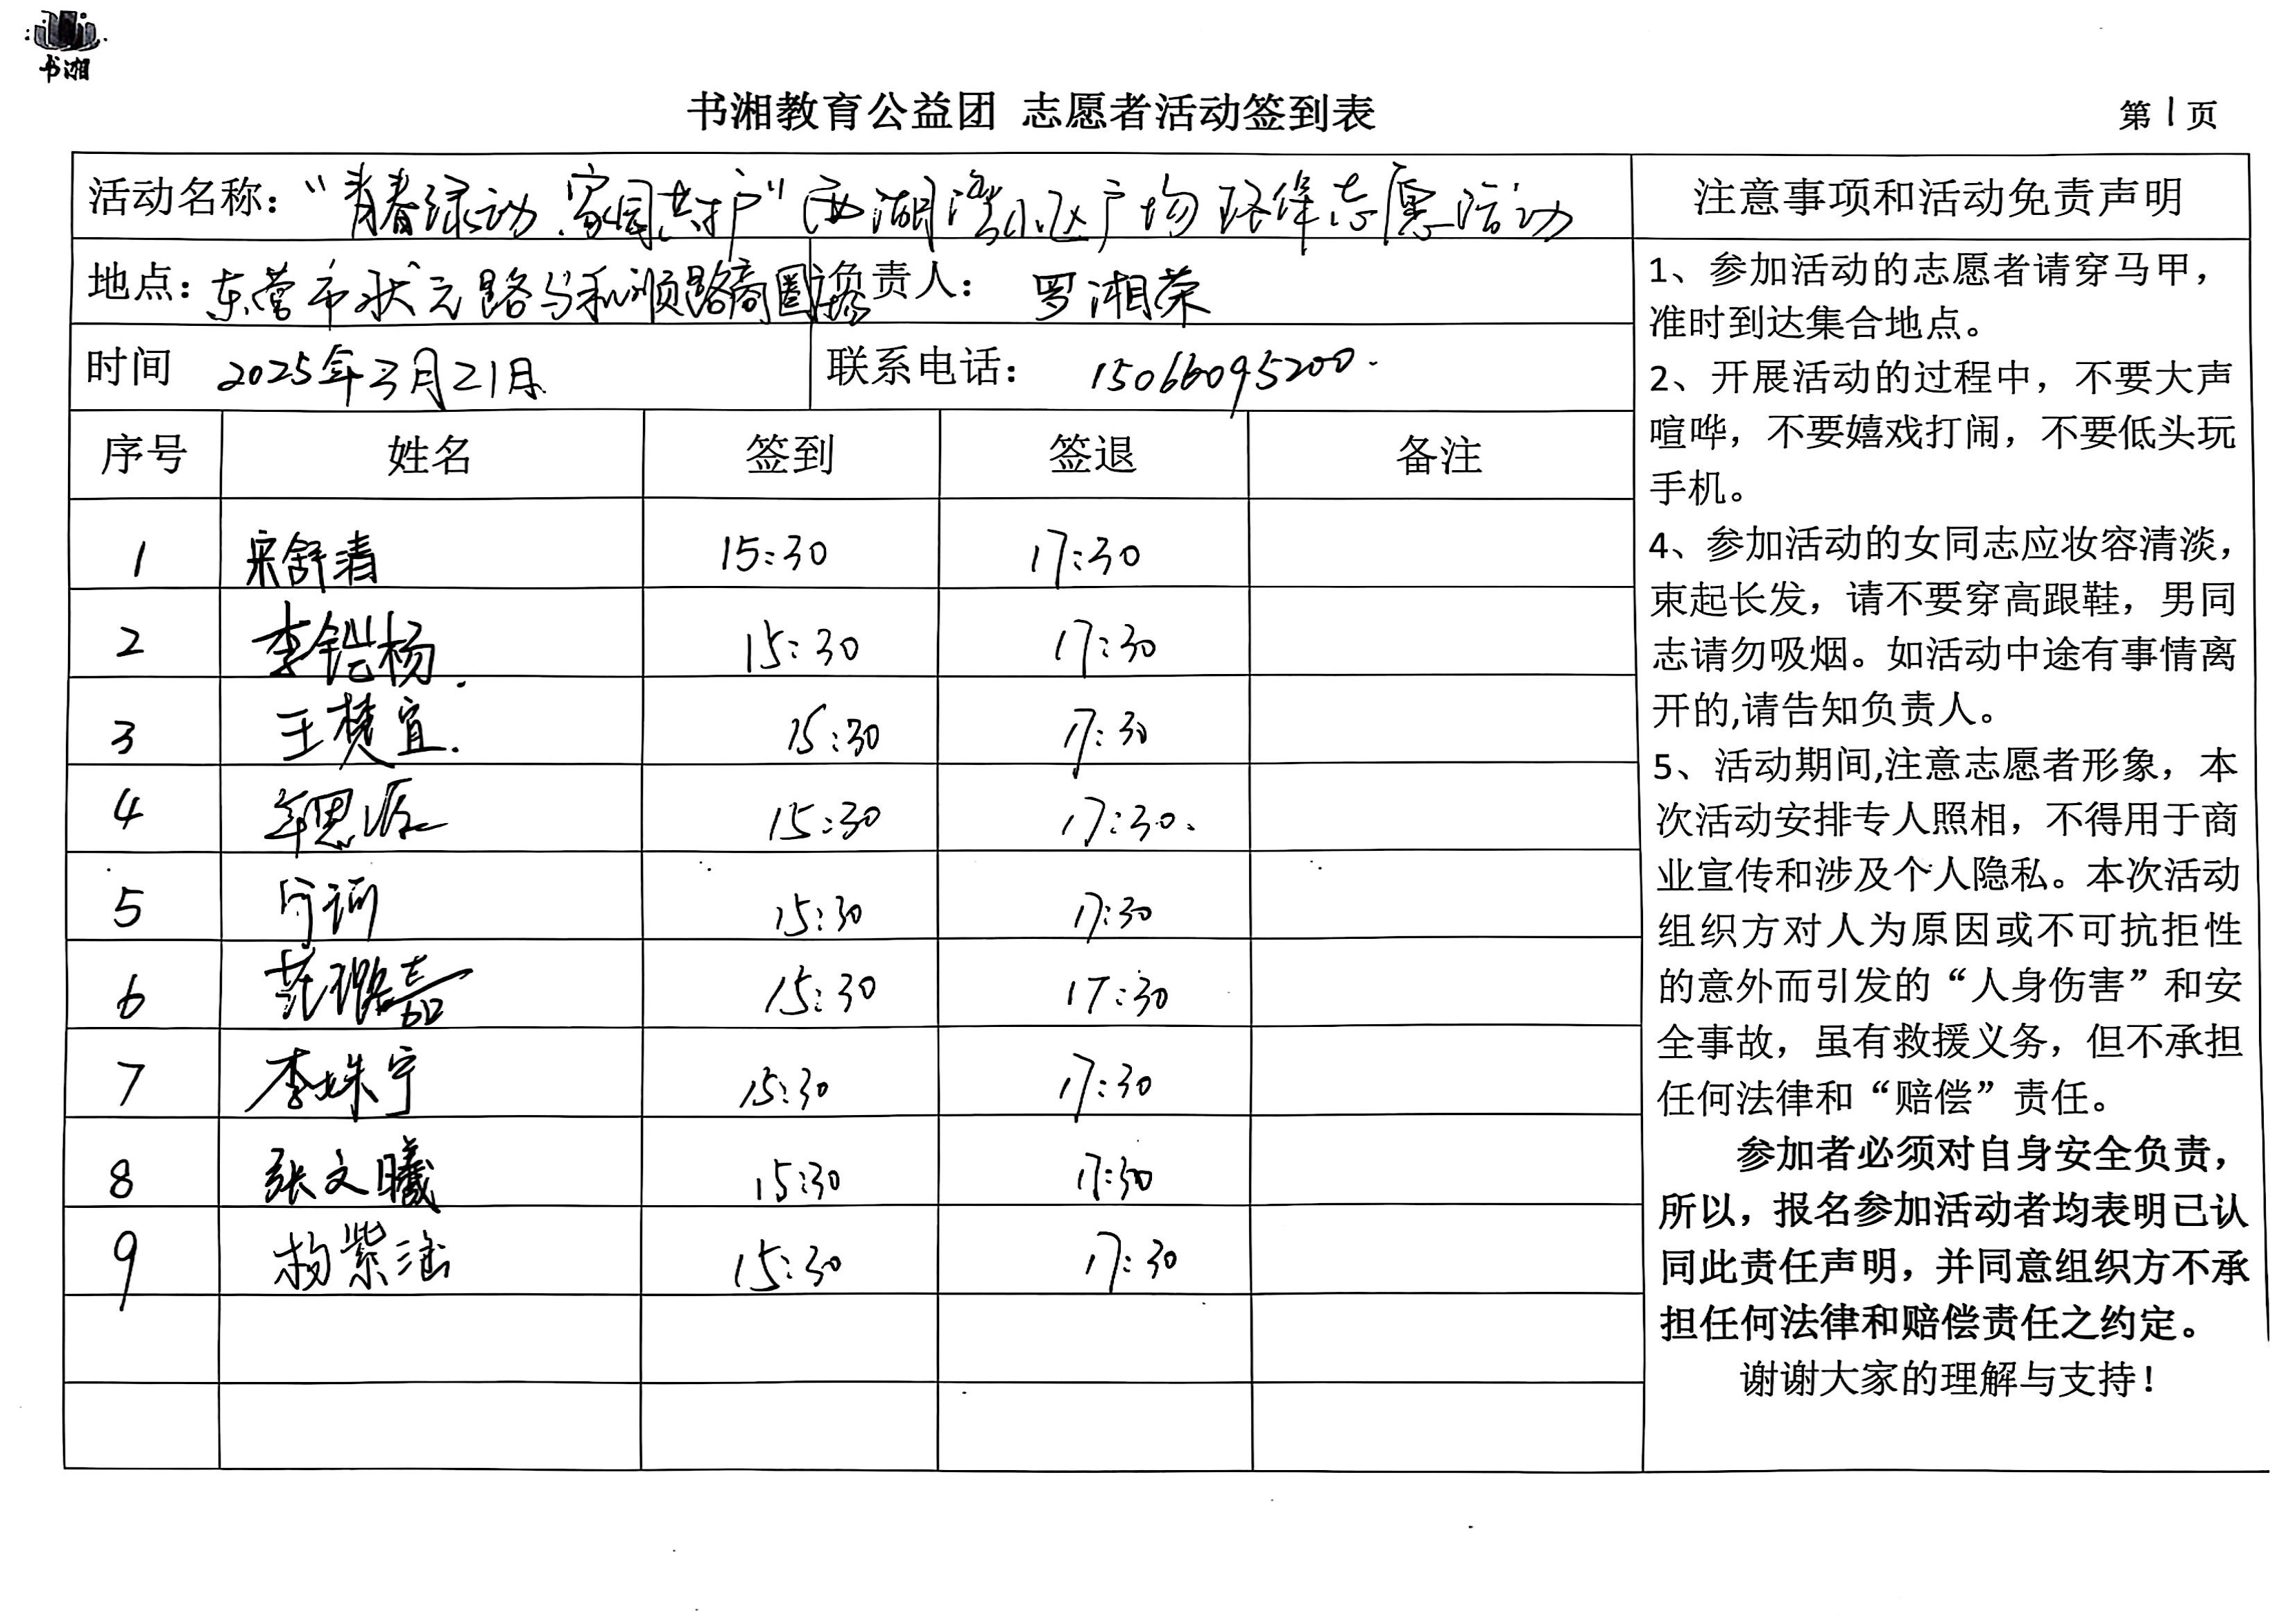 书湘
书湘教育公益团 志愿者活动签到表
第1页
活动名称：“青春绿动 家园共护”西湖湾小区广场 路锋志愿活动
地点：东营市状元路与和顺路商圈
负责人： 罗湘荣
时间 2025年3月21日
联系电话： 15066095200
序号 姓名 签到 签退 备注
1 宋舒清 15:30 17:30
2 李铠杨 15:30 17:30
3 王楚宜 15:30 17:30
4 年思 15:30 17:30
5 15:30 17:30
6 范 嘉 15:30 17:30
7 李姝宁 15:30 17:30
8 张文曦 15:30 17:30
9 杨紫涵 15:30 17:30
注意事项和活动免责声明
1、参加活动的志愿者请穿马甲，
准时到达集合地点。
2、开展活动的过程中，不要大声
喧哗，不要嬉戏打闹，不要低头玩
手机。
4、参加活动的女同志应妆容清淡，
束起长发，请不要穿高跟鞋，男同
志请勿吸烟。如活动中途有事情离
开的,请告知负责人。
5、活动期间,注意志愿者形象，本
次活动安排专人照相，不得用于商
业宣传和涉及个人隐私。本次活动
组织方对人为原因或不可抗拒性
的意外而引发的“人身伤害”和安
全事故，虽有救援义务，但不承担
任何法律和“赔偿”责任。
参加者必须对自身安全负责，
所以，报名参加活动者均表明已认
同此责任声明，并同意组织方不承
担任何法律和赔偿责任之约定。
谢谢大家的理解与支持！